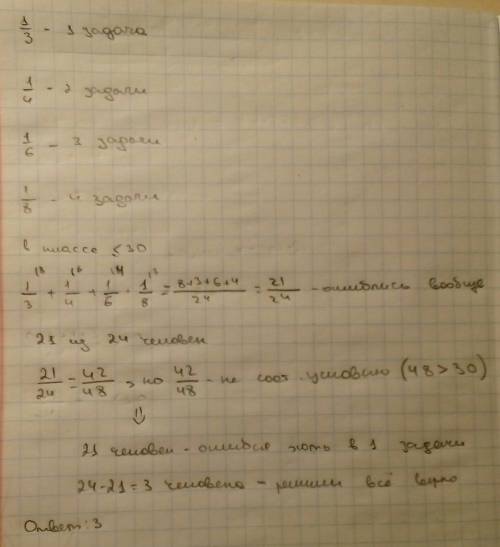 1/3 - 1 задача
1/4 - 2 задачи
1/6 - 3 задачи
1/8 - 4 задачи
в классе ≤30
1/3 + 1/4 + 1/6 + 1/8 = 8+3+6+4/24 = 21/24 - ошиблись вообще
21 из 24 человек
21/24 = 42/48, но 42/48 - не соот. условию (48 > 30)
⇓
21 человек - ошибся хоть в 1 задачи
24-21=3 человека - решили всё верно
Ответ: 3